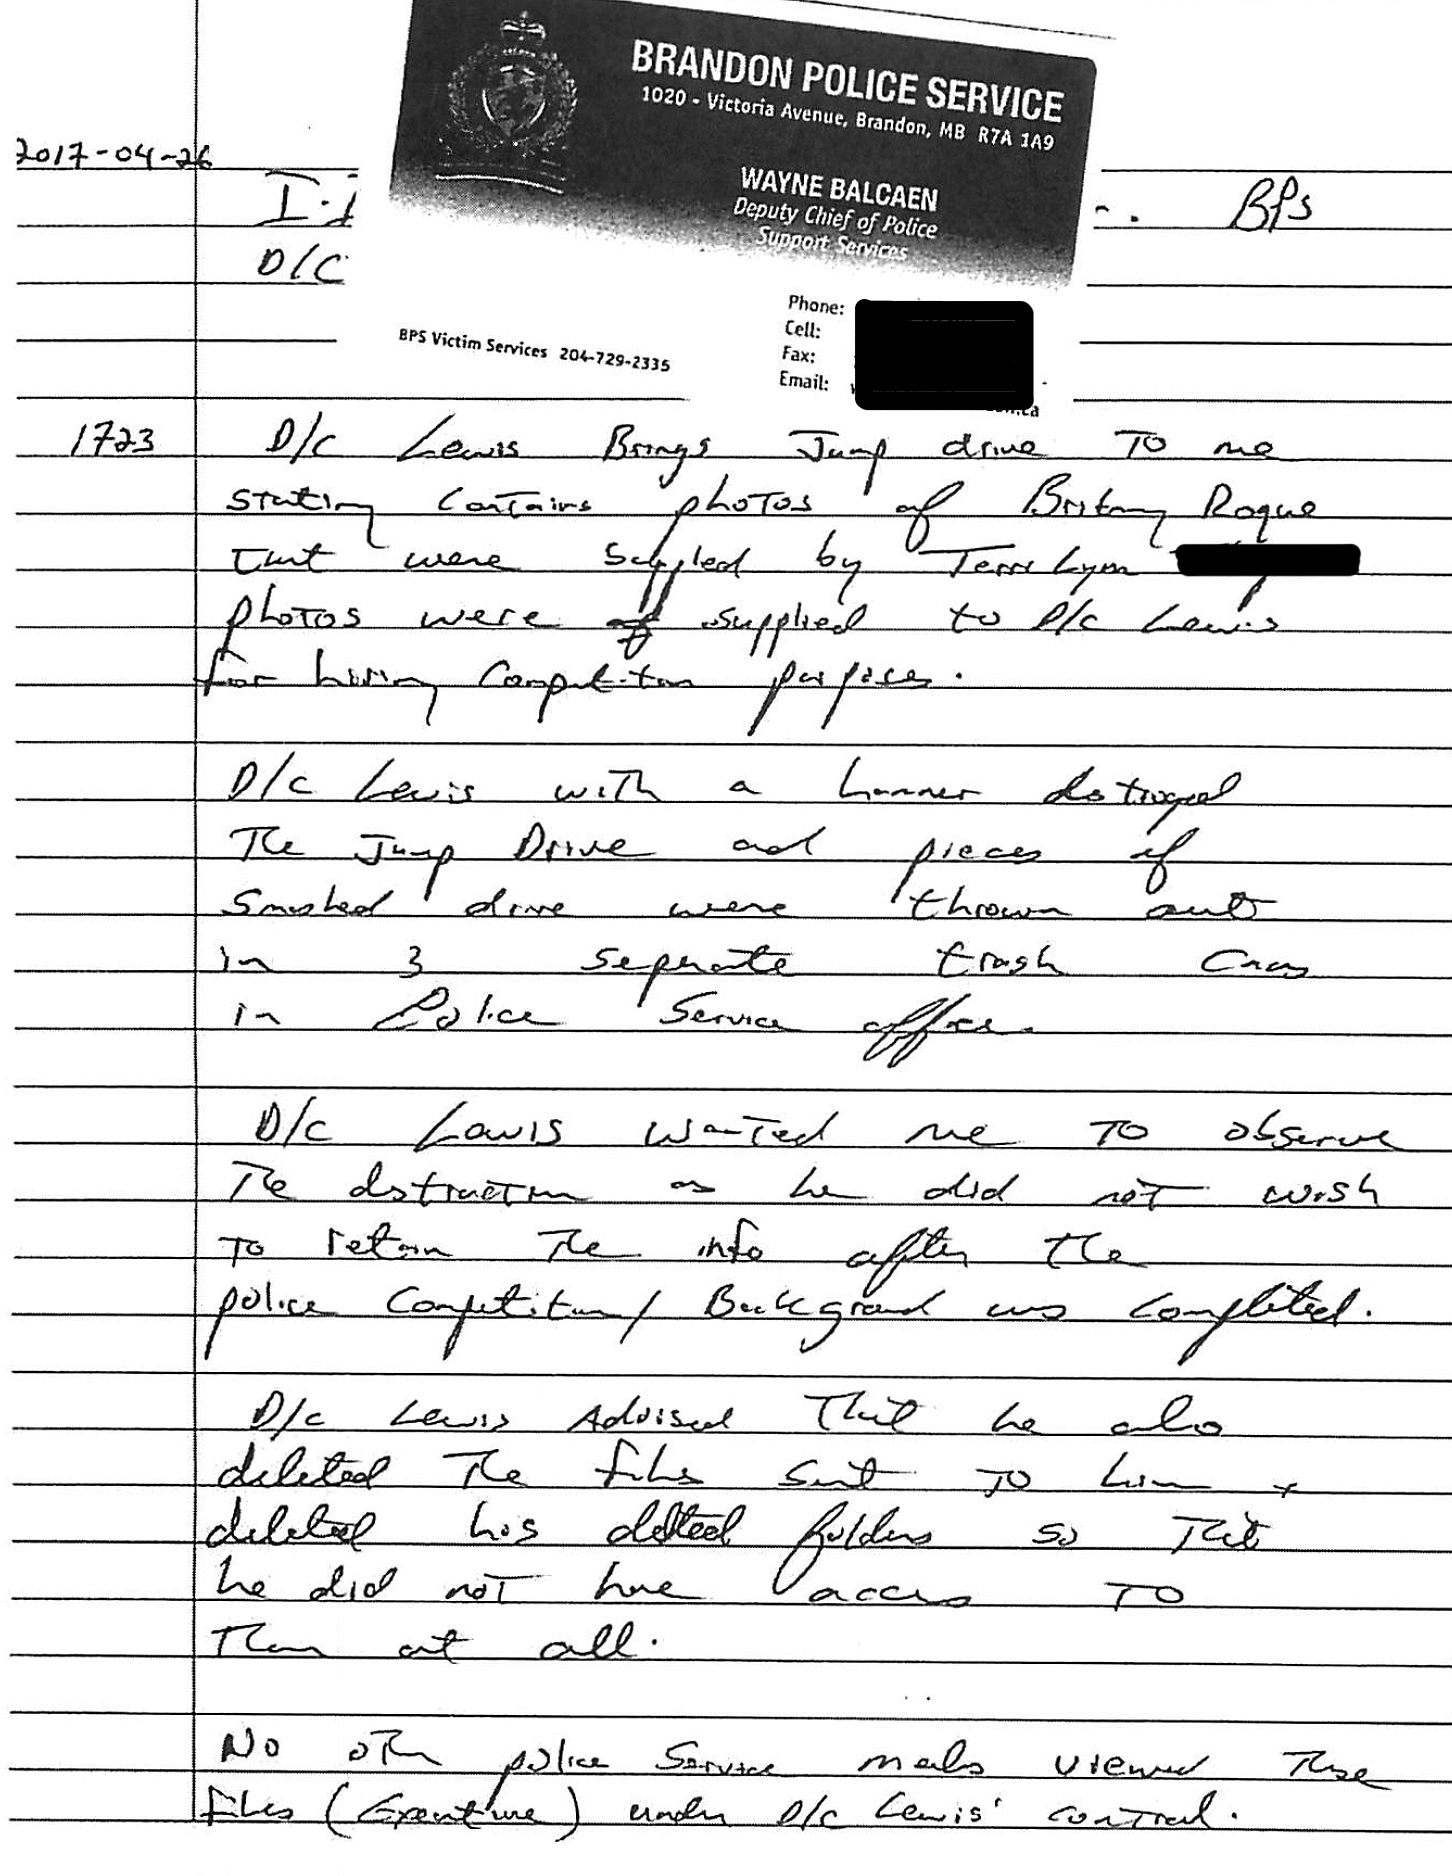 BRANDON POLICE SERVICE
1020 - Victoria Avenue, Brandon, MB R7A 1A9
WAYNE BALCAEN
Deputy Chief of Police
Support Services
Phone:
Cell:
Fax:
Email:
BPS Victim Services 204-729-2335
2017-04-26
BPS
D/C
1723 D/C Lewis Brings Jump drive TO me
stating contains photos of Britany Roque
that were supplied by Terri Lynn
photos were of supplied to D/C Lewis
for hiring Competition purposes.
D/C Lewis with a hammer destroyed
The Jump Drive and pieces of
smashed drive were thrown out
in 3 seperate trash Cans
in Police Service office.
D/C Lewis wanted me TO observe
The destruction as he did not wish
TO retain The info after the
police Competition/Background was completed.
D/C Lewis Advised That he also
deleted The files sent TO him +
deleted his deleted folders so That
he did not have access TO
Them at all.
No other police Service members viewed These
files (Executive) under D/C Lewis' control.